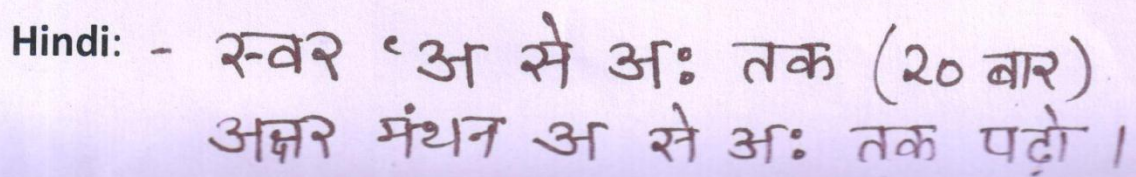 Hindi: - स्वर ‘अ से अः तक (२० बार)
अक्षर मंथन अ से अः तक पढ़ो ।